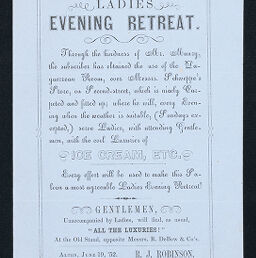 LADIES
EVENING RETREAT.
Through the kindness of Mr. Muncy,
the subscriber has obtained the use of the Da-
guerrean Room, over Messrs. Schweppe's
Store, on Second-street, which is nicely Car-
peted and fitted up; where he will, every Even-
ing when the weather is suitable, (Sundays ex-
cepted,) serve Ladies, with attending Gentle-
men, with the cool Luxuries of
ICE CREAM, ETC.
Every effort will be used to make this Pa-
lour a most agreeable Ladies Evening Retreat!
GENTLEMEN,
Unaccompanied by Ladies, will find, as usual,
"ALL THE LUXURIES!"
At the Old Stand, opposite Messrs. R. DeBow & Co's.
R. J. ROBINSON.
Alton, June 19, '52.